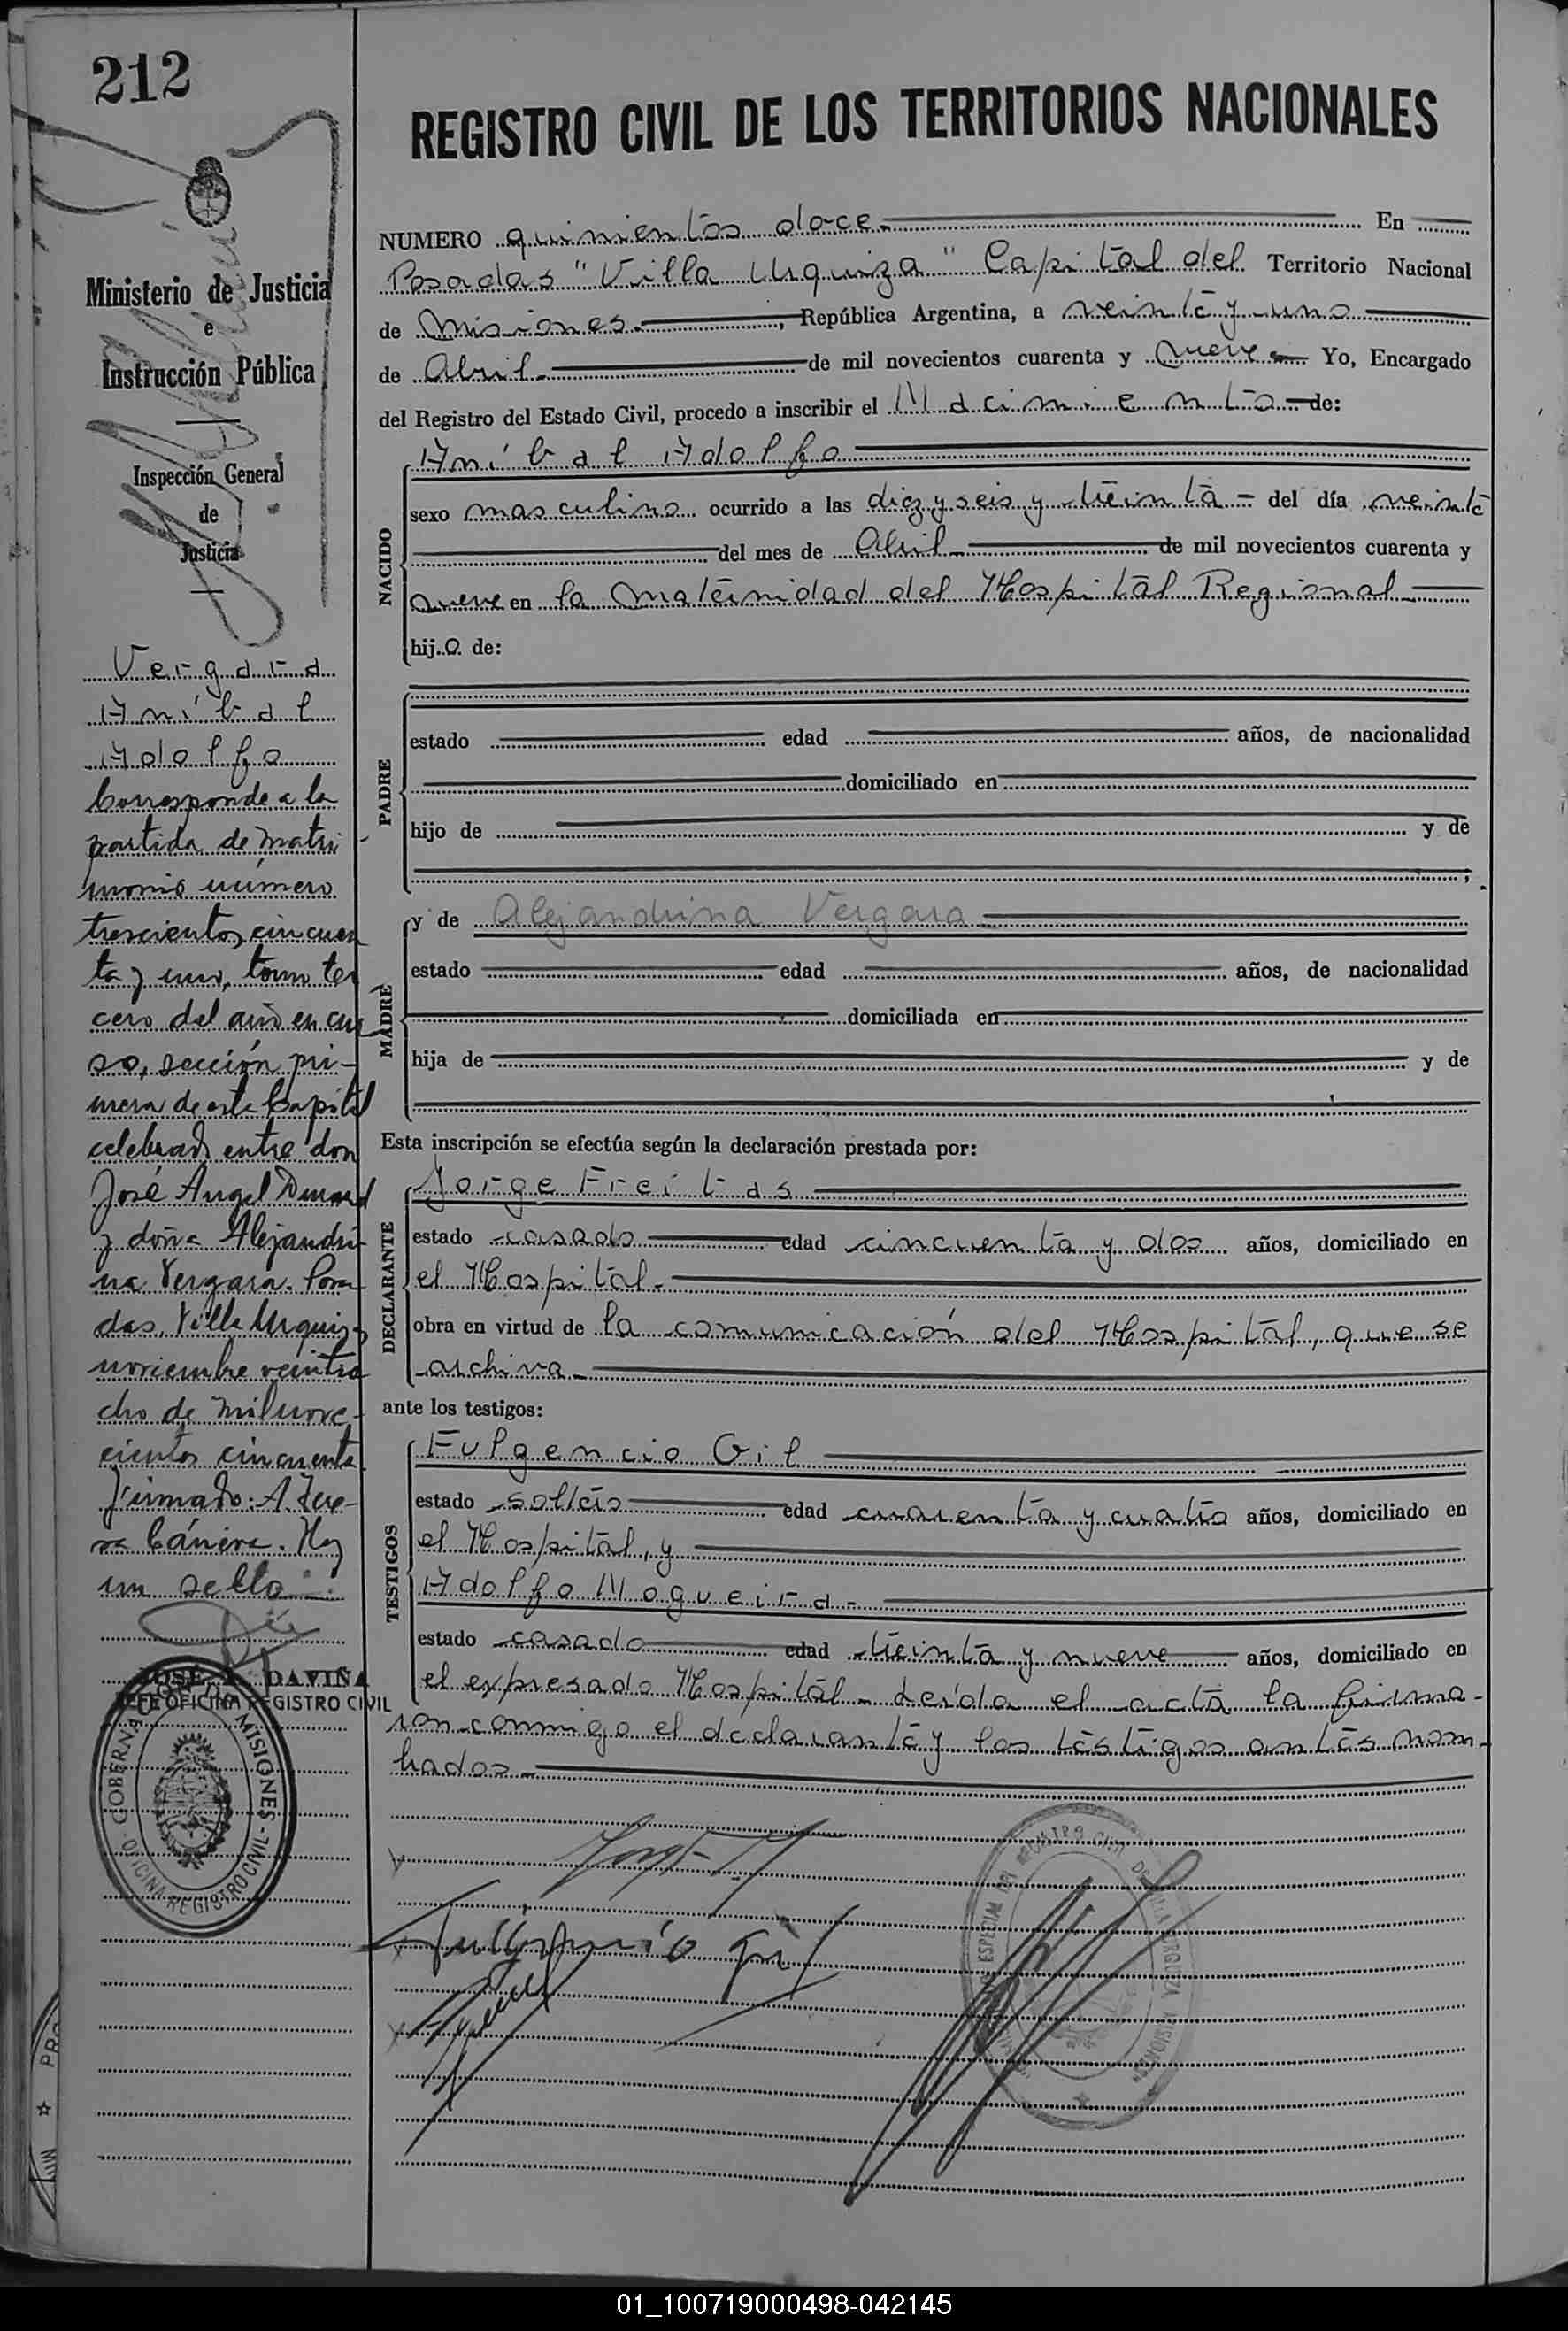 212
Ministerio de Justicia
e
Instrucción Pública
Inspección General
de
Justicia
Vergara
Aníbal
Adolfo
Corresponde a la
partida de matri
monio número
trescientos cincuen
ta y uno, tomo ter
cero del año en cur
so, sección pri-
mera de esta Capital
celebrado entre don
José Angel
y doña Alejandri
na Vergara. Posa
das, Villa Urquiza
noviembre veintio
cho de mil nove-
cientos cincuenta
Firmado: A.
Hay
un sello
JOSE DAVIÑA
JEFE OFICINA REGISTRO CIVIL
GOBERNACION MISIONES
OFICINA REGISTRO CIVIL
REGISTRO CIVIL DE LOS TERRITORIOS NACIONALES
NUMERO quinientos doce.- En
Posadas "Villa Urquiza" Capital del Territorio Nacional
de Misiones.-, República Argentina, a veinte y uno
de Abril.- de mil novecientos cuarenta y nueve Yo, Encargado
del Registro del Estado Civil, procedo a inscribir el Nacimiento de:
NACIDO
Aníbal Adolfo
sexo masculino ocurrido a las diez y seis y treinta - del día veinte
del mes de Abril - de mil novecientos cuarenta y
nueve en la maternidad del Hospital Regional
hijo de:
PADRE
estado edad años, de nacionalidad
domiciliado en
hijo de y de
;
MADRE
y de Alejandrina Vergara
estado edad años, de nacionalidad
domiciliada en
hija de y de
Esta inscripción se efectúa según la declaración prestada por:
DECLARANTE
Jorge Freitas
estado casado edad cincuenta y dos años, domiciliado en
el Hospital.-
obra en virtud de la comunicación del Hospital, que se
archiva.-
ante los testigos:
TESTIGOS
Fulgencio Gil
estado soltero edad cuarenta y cuatro años, domiciliado en
el Hospital, y
Adolfo Nogueira.-
estado casado edad treinta y nueve años, domiciliado en
el expresado Hospital - Leída el acta la firma-
ron conmigo el declarante y los testigos antes nom-
brados.-
Fulgencio Gil
01_100719000498-042145